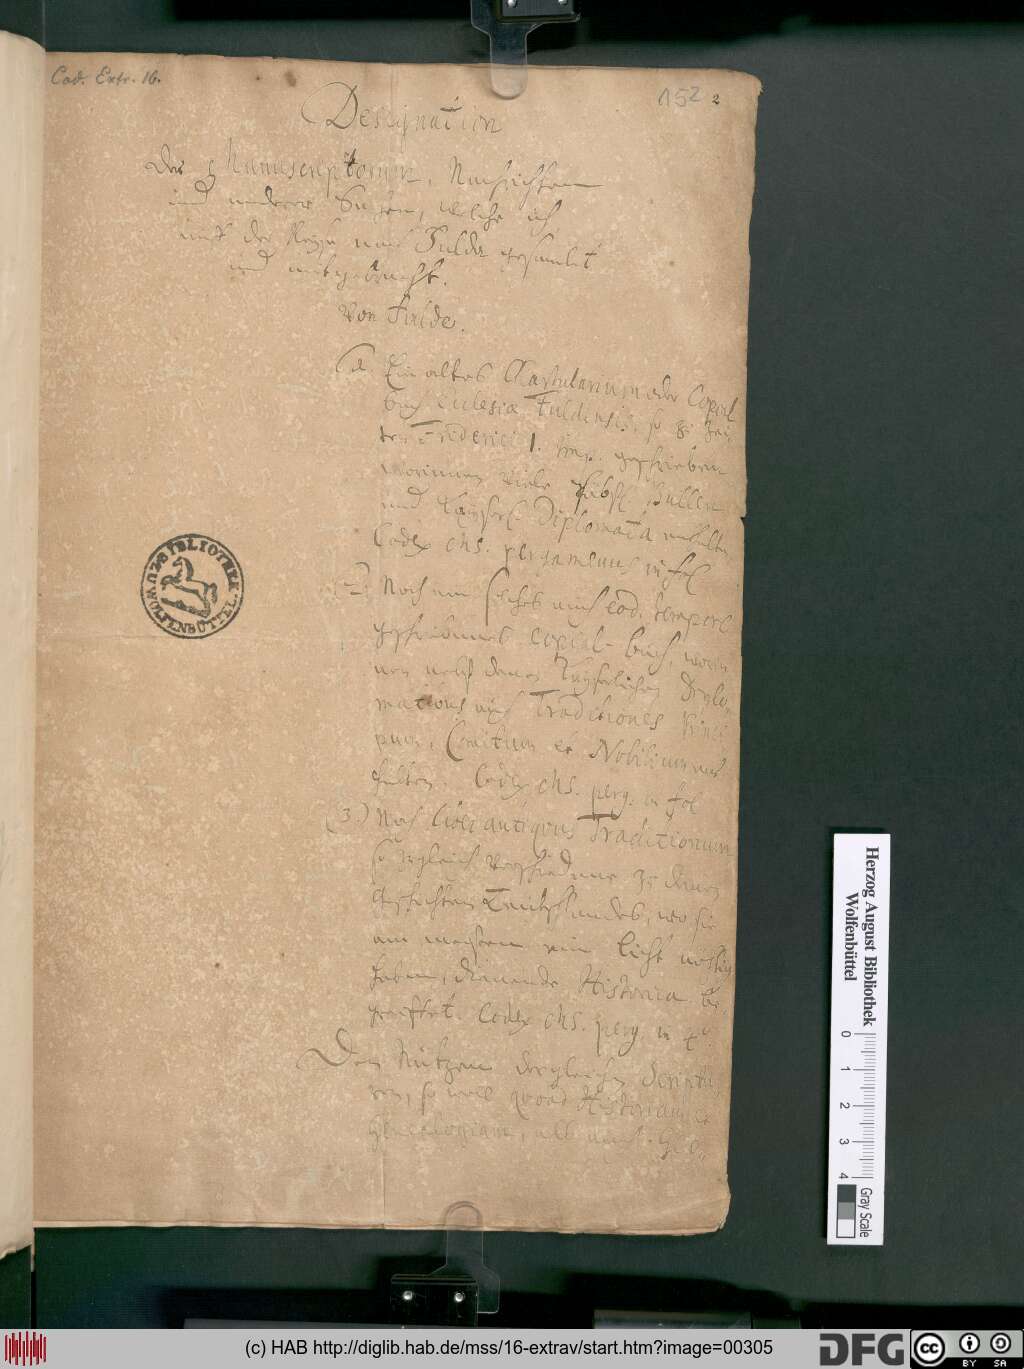 Cod. Extr. 16.
152 2
Designation
Der Manuscriptorum, Nachrichten
und anderer Sachen, welche ich
auf der Reyse nach Fulda gesamlet
und mitgebracht.
Von Fulde.
(1. Ein altes Chartularium oder Copial
buch Ecclesiæ Fuldensis, so zu Zei
ten Friderici I. Imp. geschrieben
worinnen viele Päbstl. Bullen
und Kayserl. Diplomata enthalten
Codex MS. pergamenus in fol
(2. Noch ein solches auch eod. tempore
geschriebenes Copial-buch, worin
nen nebst denen Kayserlichen Diplo
matibus auch Traditiones Princi
pum, Comitum et Nobilium ent
halten. Codex MS. perg. in fol
(3.) Noch Codex antiquus Traditionum
so zugleich verschiedene zu denen
Geschichten Teutschlandes, wo sie
am meisten ein Licht nöthig
haben, dienende Historica be
greiffet. Codex MS. perg. in 4to
Den Nutzen dergleichen
so wol quoad Historiam
Genealogiam, als auch
BIBLIOTHEK
ZU WOLFENBÜTTEL
Herzog August Bibliothek
Wolfenbüttel
0 1 2 3 4
Gray Scale
(c) HAB http://diglib.hab.de/mss/16-extrav/start.htm?image=00305
DFG
cc
BY SA